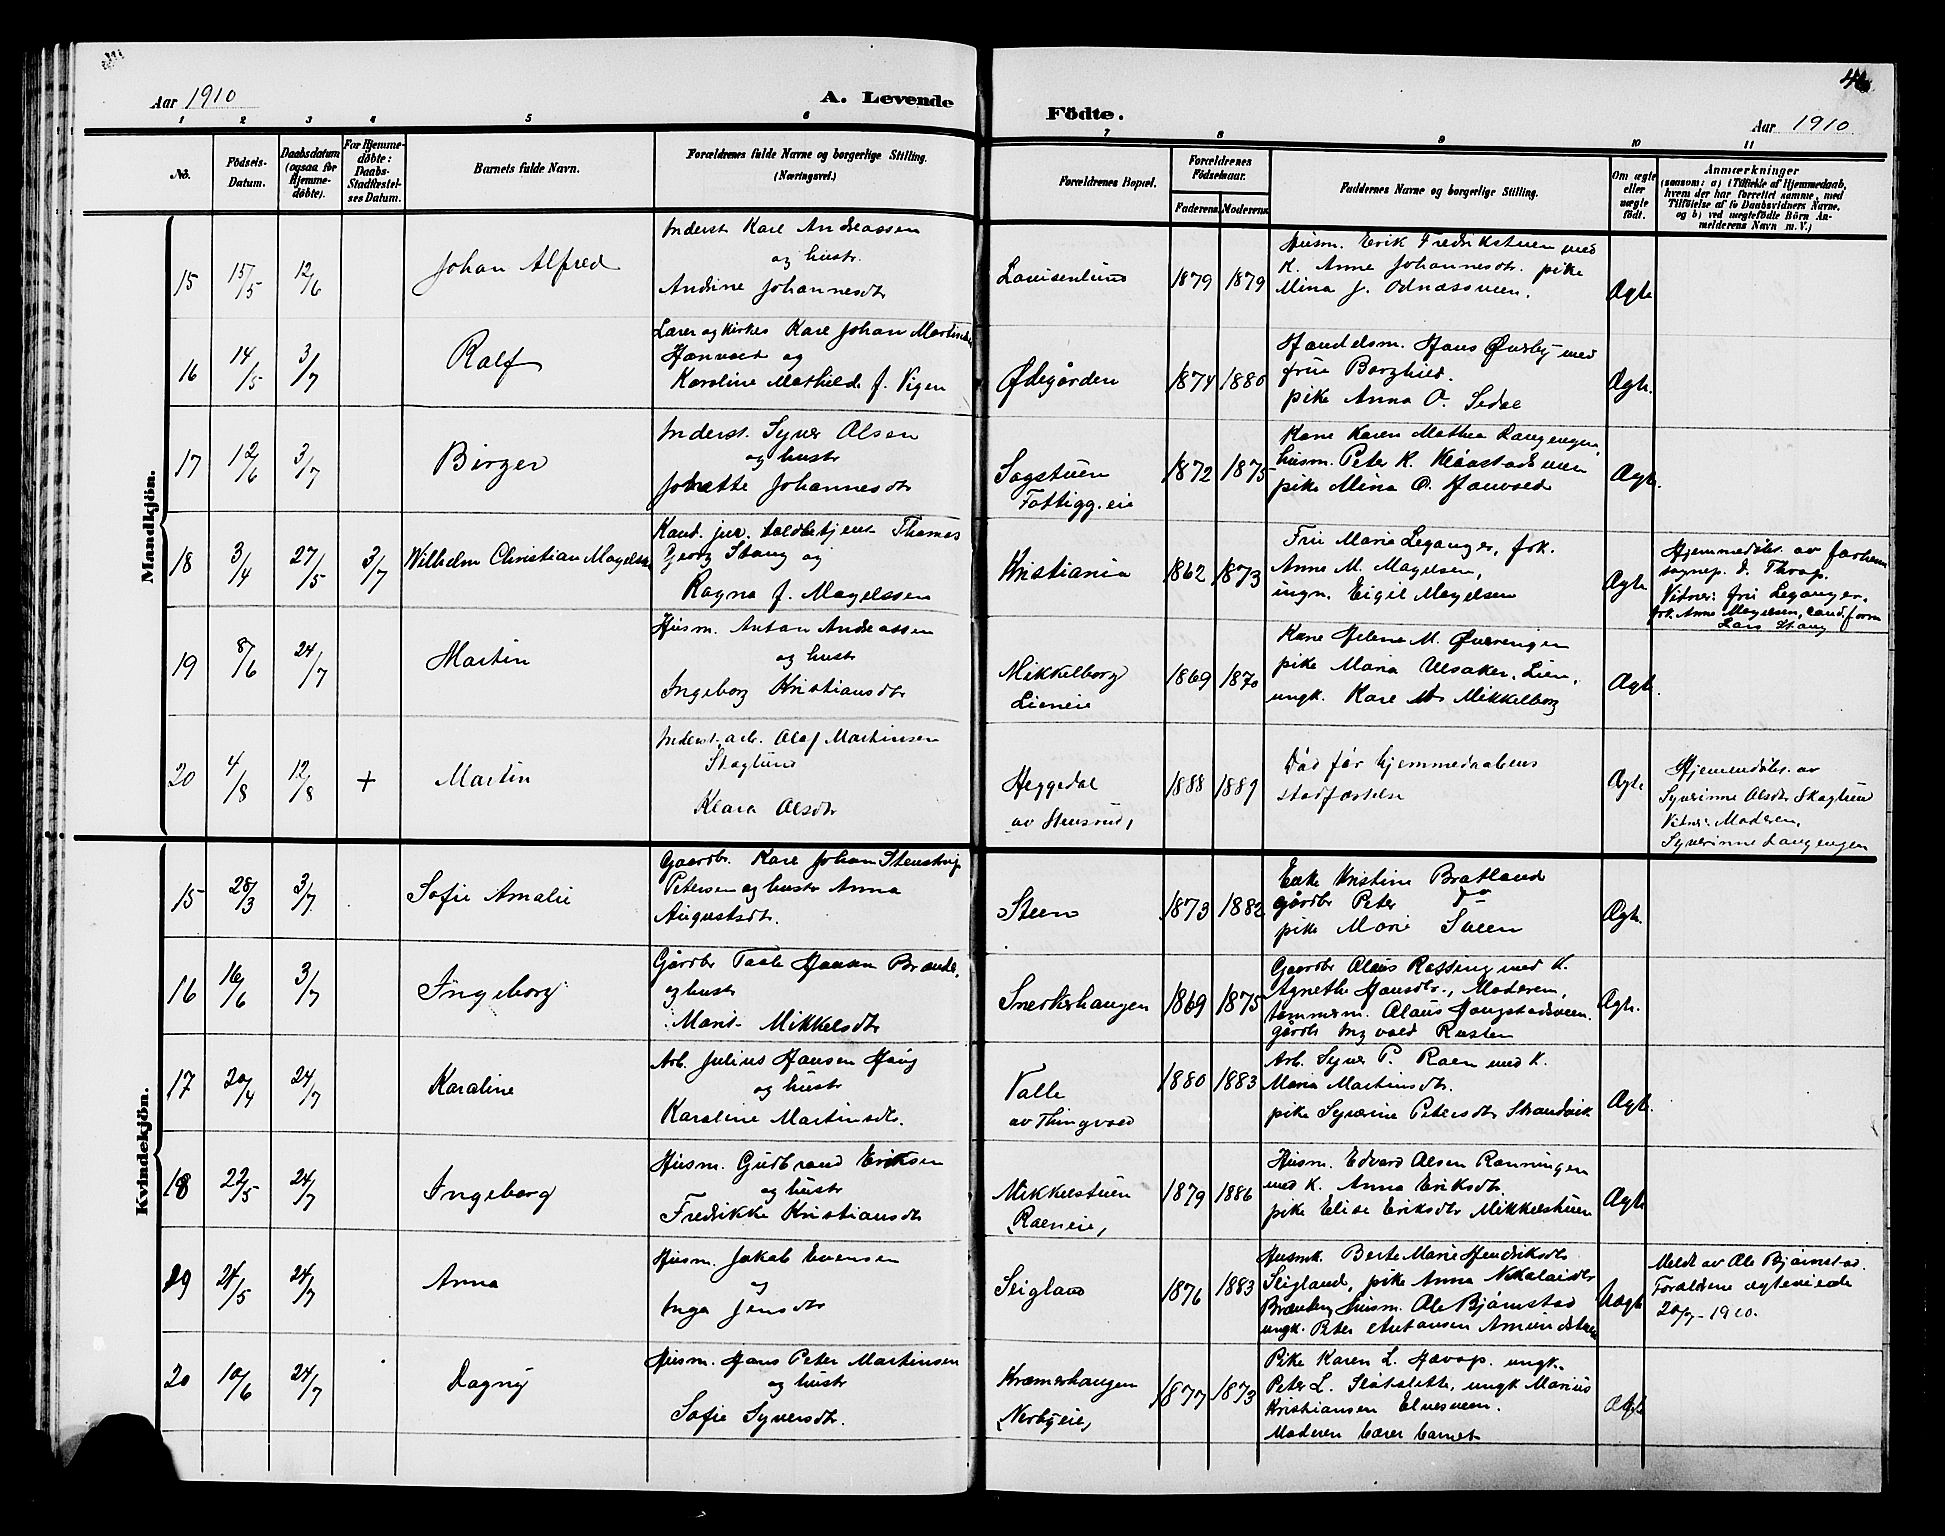 Aar 1910
A. Levende
Födte.
46
Aar 1910
1 2 3 4 5 6 7 8 9 10 11
No.
Födsels-
Datum.
Daabsdatum
(ogsaa for
Hjemme-
döbte).
For Hjemme-
döbte:
Daabs-
Stadfæstel-
ses Datum.
Barnets fulde Navn.
Forældrenes fulde Navne og borgerlige Stilling.
(Næringsvei.)
Forældrenes Bopæl.
Forældrenes
Födselsaar.
Faderens. Moderens.
Faddernes Navne og borgerlige Stilling.
Om ægte
eller
uægte
födt.
Anmærkninger
(saasom: a) i Tilfælde af Hjemmedaab,
hvem der har forrettet samme, med
Tilföielse af to Daabsvidners Navne,
og b) ved uægtefödte Börn An-
melderens Navn m. V.)
Mandkjön.
15 15/5 12/6 Johan Alfred
Inderst Karl Andreassen
og hustr
Andrine Johannesdtr
Louisenlund 1879 1879
Husm. Erik Fredrikstuen med
K. Anne Johannesdtr. pike
Mina J. Odnæssveen.
Ægte
16 14/5 3/7 Ralf
Lærer og Kirkes Karl Johan Martinsen
Hanvold og
Karoline Mathilde f. Vigen
Ødegården 1874 1880
Handelsm. Hans Øverby med
frue Borghild.
pike Anna O. Sedal
Ægte.
17 12/6 3/7 Birger
Inderst. Syver Olsen
og hustr
Johatte Johannesdtr
Sagstuen
Fattigg. eie
1872 1875
Kone Karen Mathea Langengen,
husm. Peter K. Klåastadsveen
pike Mina O. Hanvold
Ægte.
18 3/4 27/5 3/7 Wilhelm Christian Magelssen
Kand. jur. toldbetjent Thomas
Georg Stang og
Ragna f. Magelssen
Kristiania 1862 1873
Frue Marie Leganger, frk.
Anne M. Magelsen,
ingn. Eigil Magelsen
Ægte
Hjemmedøbt av forhenv.
sognep. D. Thrap.
Vitner: fru Leganger,
frk. Anne Magelsen, cand. farm
Lars Stang
19 8/6 24/7 Martin
Husm. Anton Andreassen
og hustr
Ingeborg Kristiansdtr
Mikkelborg
Lieneie
1869 1870
Kone Helene M. Øverengen
pike Maria Ulsaker, Lien,
ungk. Karl M. Mikkelborg
Ægte.
20 4/8 12/8 + Martin
Inderst. arb. Olaf Martinsen
Skoglund
Klara Olsdtr
Heggedal
av Stensrud,
1888 1889
Død før hjemmedaabens
stadfæstelse
Ægte
Hjemmedøbt av
Syverinne Olsdtr Skoglund
Vitner: Moderen,
Syverinne Langengen
Kvindekjön.
15 28/3 3/7 Sofie Amalie
Gaardbr. Karl Johan Stenstvig
Petersen og hustr Anna
Augustsdtr.
Steen 1873 1882
Enke Kristine Bratland
gårdbr Peter do
pike Marie Sveen
Ægte.
16 16/6 3/7 Ingeborg
Gårdbr Taale Hansen Brande,
og hustr
Marit Mikkelsdtr
Snerkerhaugen 1869 1875
Gaardbr Olaus Rosseng med K.
Agnethe Hansdtr., Moderen,
tømmerm. Olaus Haugstadsveen.
gårdbr Ingvald Rusten
Ægte.
17 20/4 24/7 Karoline
Arb. Julius Hansen Haug
og hustr
Karoline Martinsdtr.
Valle
av Thingvold
1880 1883
Arb. Syver P. Roen med K.
Maria Martinsdtr.
pike Syverine Petersdtr Strandvik
Ægte.
18 22/5 24/7 Ingeborg
Husm. Gudbrand Eriksen
og hustr
Fredrikke Kristiansdtr
Mikkelstuen
Roeneie,
1879 1886
Husm. Edvard Olsen Rønningen
med K. Anna Eriksdtr.
pike Elise Eriksdtr Mikkelstuen
Ægte
19 24/5 24/7 Anna
Husm. Jakob Evensen
og
Inga Jensdtr
Stigland 1876 1883
Husmk. Berte Marie Hendriksdtr
Stigland, pike Anna Nikolaidtr
Brænberg husm. Ole Bjørnstad
ungk. Peter Antonsen Amundstuen
Uægte
Meldt av Ole Bjørnstad.
Forældrene egteviede
20/7 - 1910.
20 10/6 24/7 Dagny
Husm. Hans Peter Martinsen
og hustr
Sofie Syversdtr.
Kramerhaugen
Nerbyeie,
1877 1873
Pike Karen L. Hovop. ungk.
Peter L. Slåtsletten, ungk Marius
Kristiansen Elvesveen.
Moderen bærer barnet
Ægte